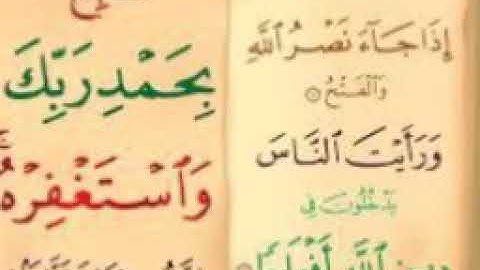 إِذَا جَآءَ نَصْرُ ٱللَّهِ
وَٱلْفَتْحُ
وَرَأَيْتَ ٱلنَّاسَ
يَدْخُلُونَ فِي
دِينِ ٱللَّهِ أَفْوَاجًا
بِحَمْدِ رَبِّكَ
وَٱسْتَغْفِرْهُ